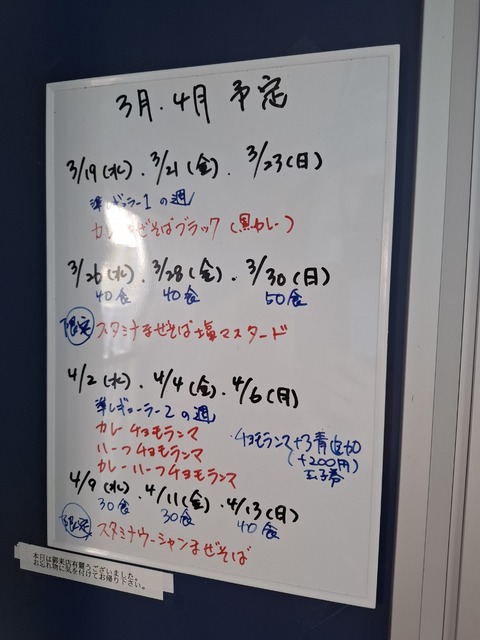 3月.4月 予定
3/19(水).3/21(金).3/23(日)
準レギュラー1の週
カレーまぜそばブラック(黒カレー)
3/26(水).3/28(金).3/30(日)
40食 40食 50食
限定 スタミナまぜそば塩マスタード
4/2(水).4/4(金).4/6(月)
準レギュラー2の週
カレーチョモランマ
ハーフチョモランマ
カレーハーフチョモランマ
チョモランマ+3
(+200円)
4/9(水).4/11(金).4/13(日)
30食 30食 40食
限定 スタミナウーシャンまぜそば
本日は御来店有難うございました。
お忘れ物に気を付けてお帰り下さい。